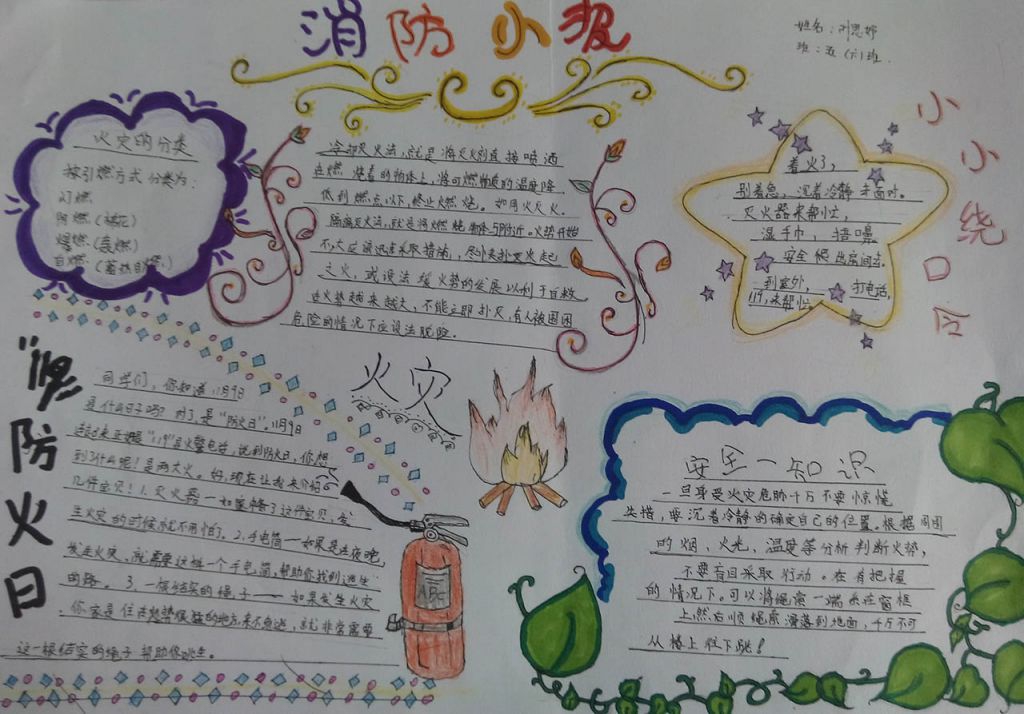 消防小报
姓名：刘思婷
班：五（六）班
火灾的分类
按引燃方式分类为：
闪燃
自燃（
冷却灭火法，就是将灭火剂直接喷洒
在燃烧着的物体上，将可燃物质的温度降
低到燃点以下，终止燃烧。如用水灭火。
隔离灭火法，就是将燃烧物体与附近。火势开始
不大应该迅速采取措施，尽快扑灭火起
之火，或设法缓火势的发展以利于自救
在火势越来越大，不能立即扑灭，有人被围困
危险的情况下应设法脱险。
小小绕口令
着火了，
别着急，沉着冷静来面对。
灭火器来帮忙，
湿手巾，捂口鼻
安全爬出房间去。
到室外，打电话，
119，来帮忙。
防火日
同学们，你知道，11月9日
是什么日子吗？对了，是“防火日”，11月9日
“119”是火警电话，说到防火日，你想
到了什么呢！是两大火。好，现在让我来介绍
几件宝贝！1.灭火器——如果准备了这件宝贝，发
生火灾的时候就不用怕了。2.手电筒——如果是在夜晚，
发生火灾，就需要这样一个手电筒，帮助你找到逃生
的路。3.一根结实的绳子——如果发生火灾
你家是住在
这一根结实的绳子帮助你逃生。
火灾
ABC
安全一知识
一旦身受火灾危胁千万不要惊慌
失措，要沉着冷静的确定自己的位置。根据周围
的烟、火光、温度等分析判断火势，
不要盲目采取行动。在有把握
的情况下。可以将绳索一端系在窗框
上，然后顺绳索滑落到地面，千万不可
从楼上往下跳！